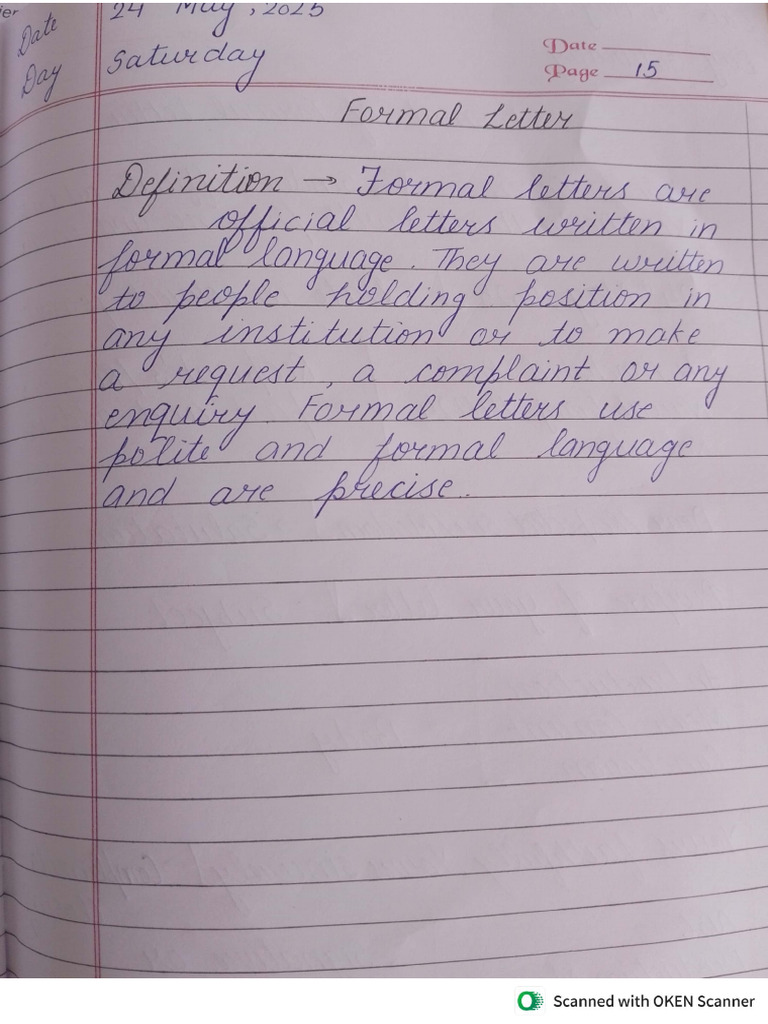 Date 24 May, 2025
Day Saturday
Date
Page 15
Formal Letter
Definition → Formal letters are
official letters written in
formal language. They are written
to people holding position in
any institution or to make
a request, a complaint or any
enquiry. Formal letters use
polite and formal language
and are precise.
Scanned with OKEN Scanner